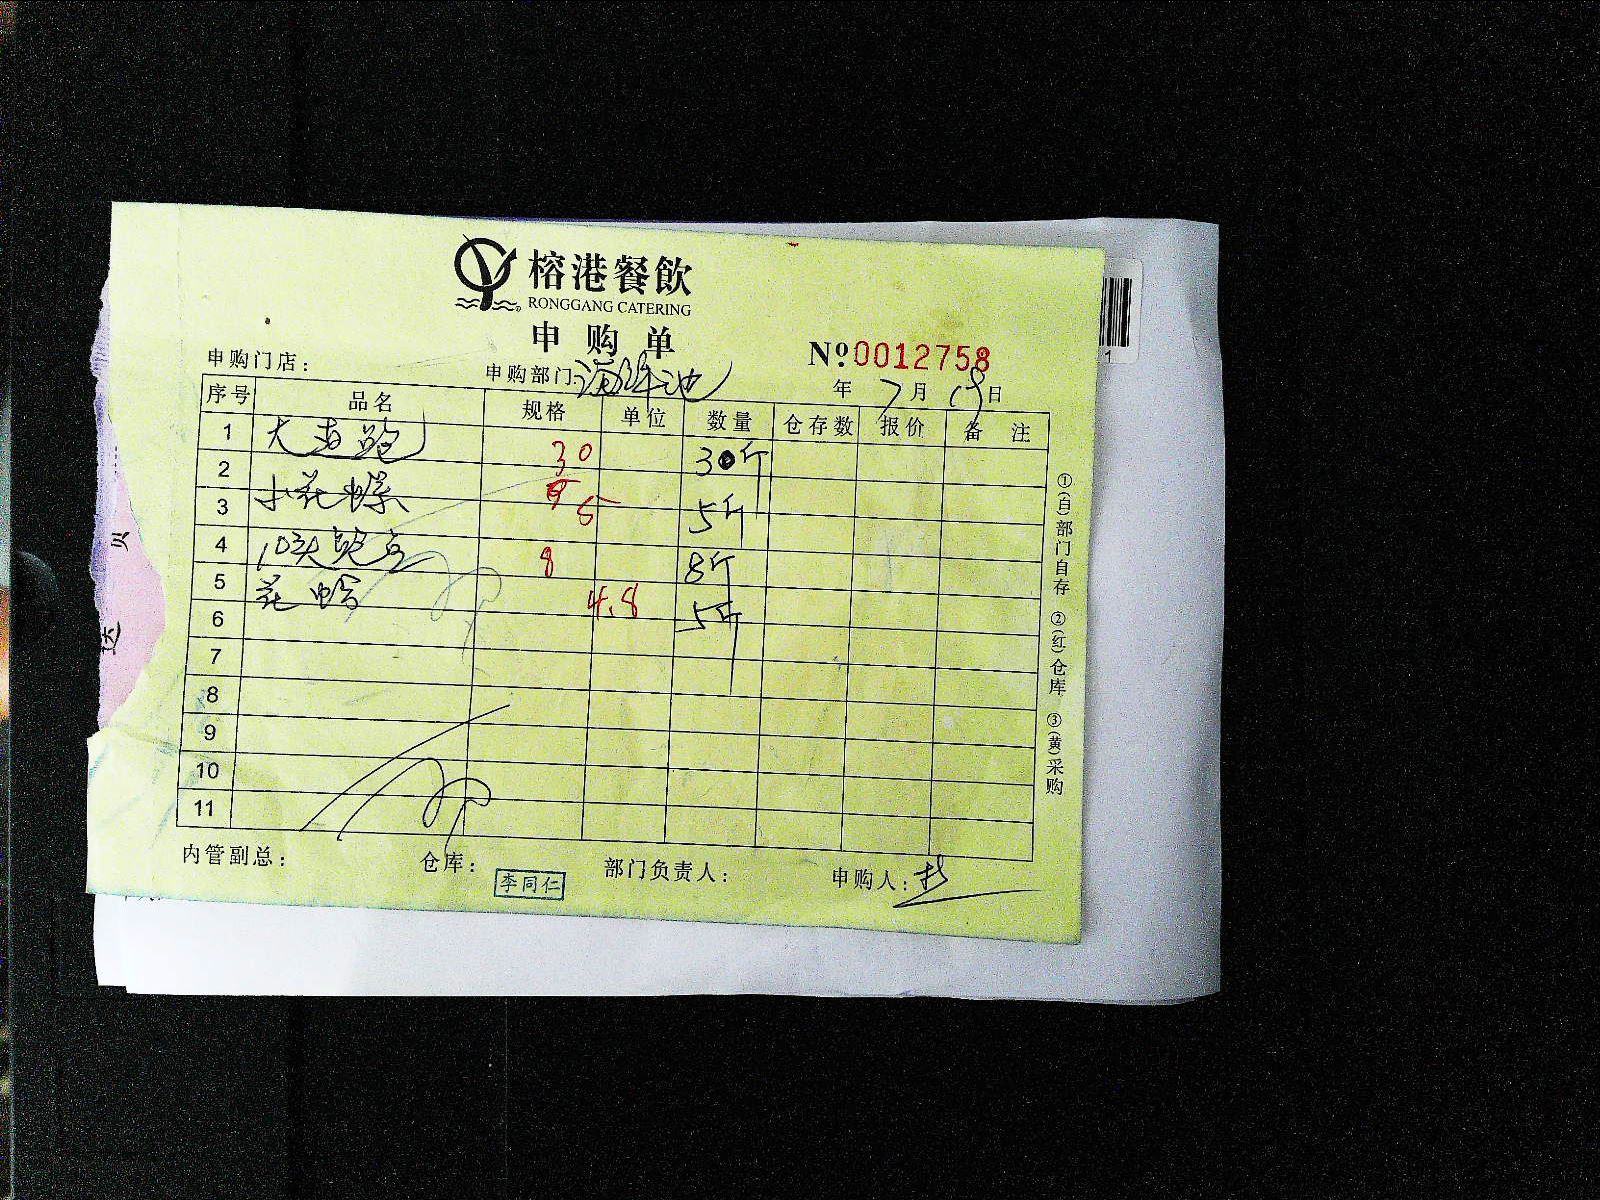 榕港餐飲
RONGGANG CATERING
申购单
№ 0012758
申购门店： 申购部门： 海鲜池 年 7 月 19 日
序号 品名 规格 单位 数量 仓存数 报价 备注
1 大 鲍 30 30斤
2 小花螺 5 5斤
3 10头鲍 8 8斤
4 花蛤 4.8 5斤
5
6
7
8
9
10
11
内管副总： 仓库： 李同仁 部门负责人： 申购人：
①(白)部门自存 ②(红)仓库 ③(黄)采购
1
贝
达